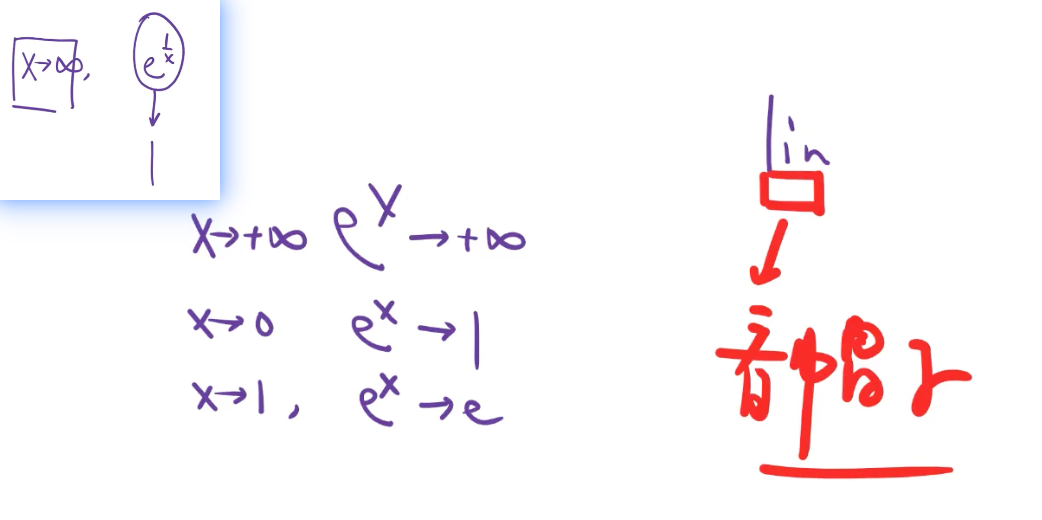 x→∞, e^{1/x}
↓
1
x→+∞ e^x→+∞
x→0 e^x→1
x→1, e^x→e
lin
↓
音中冒了